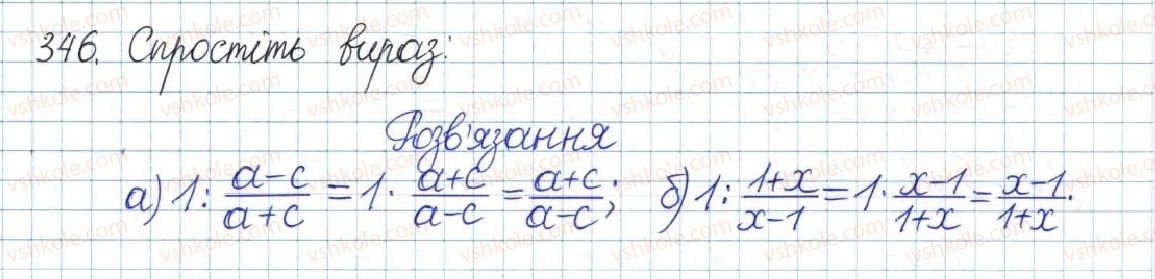 346. Спростіть вираз:
Розв'язання
а) 1 : (a-c)/(a+c) = 1 · (a+c)/(a-c) = (a+c)/(a-c); б) 1 : (1+x)/(x-1) = 1 · (x-1)/(1+x) = (x-1)/(1+x).
vshkole.com